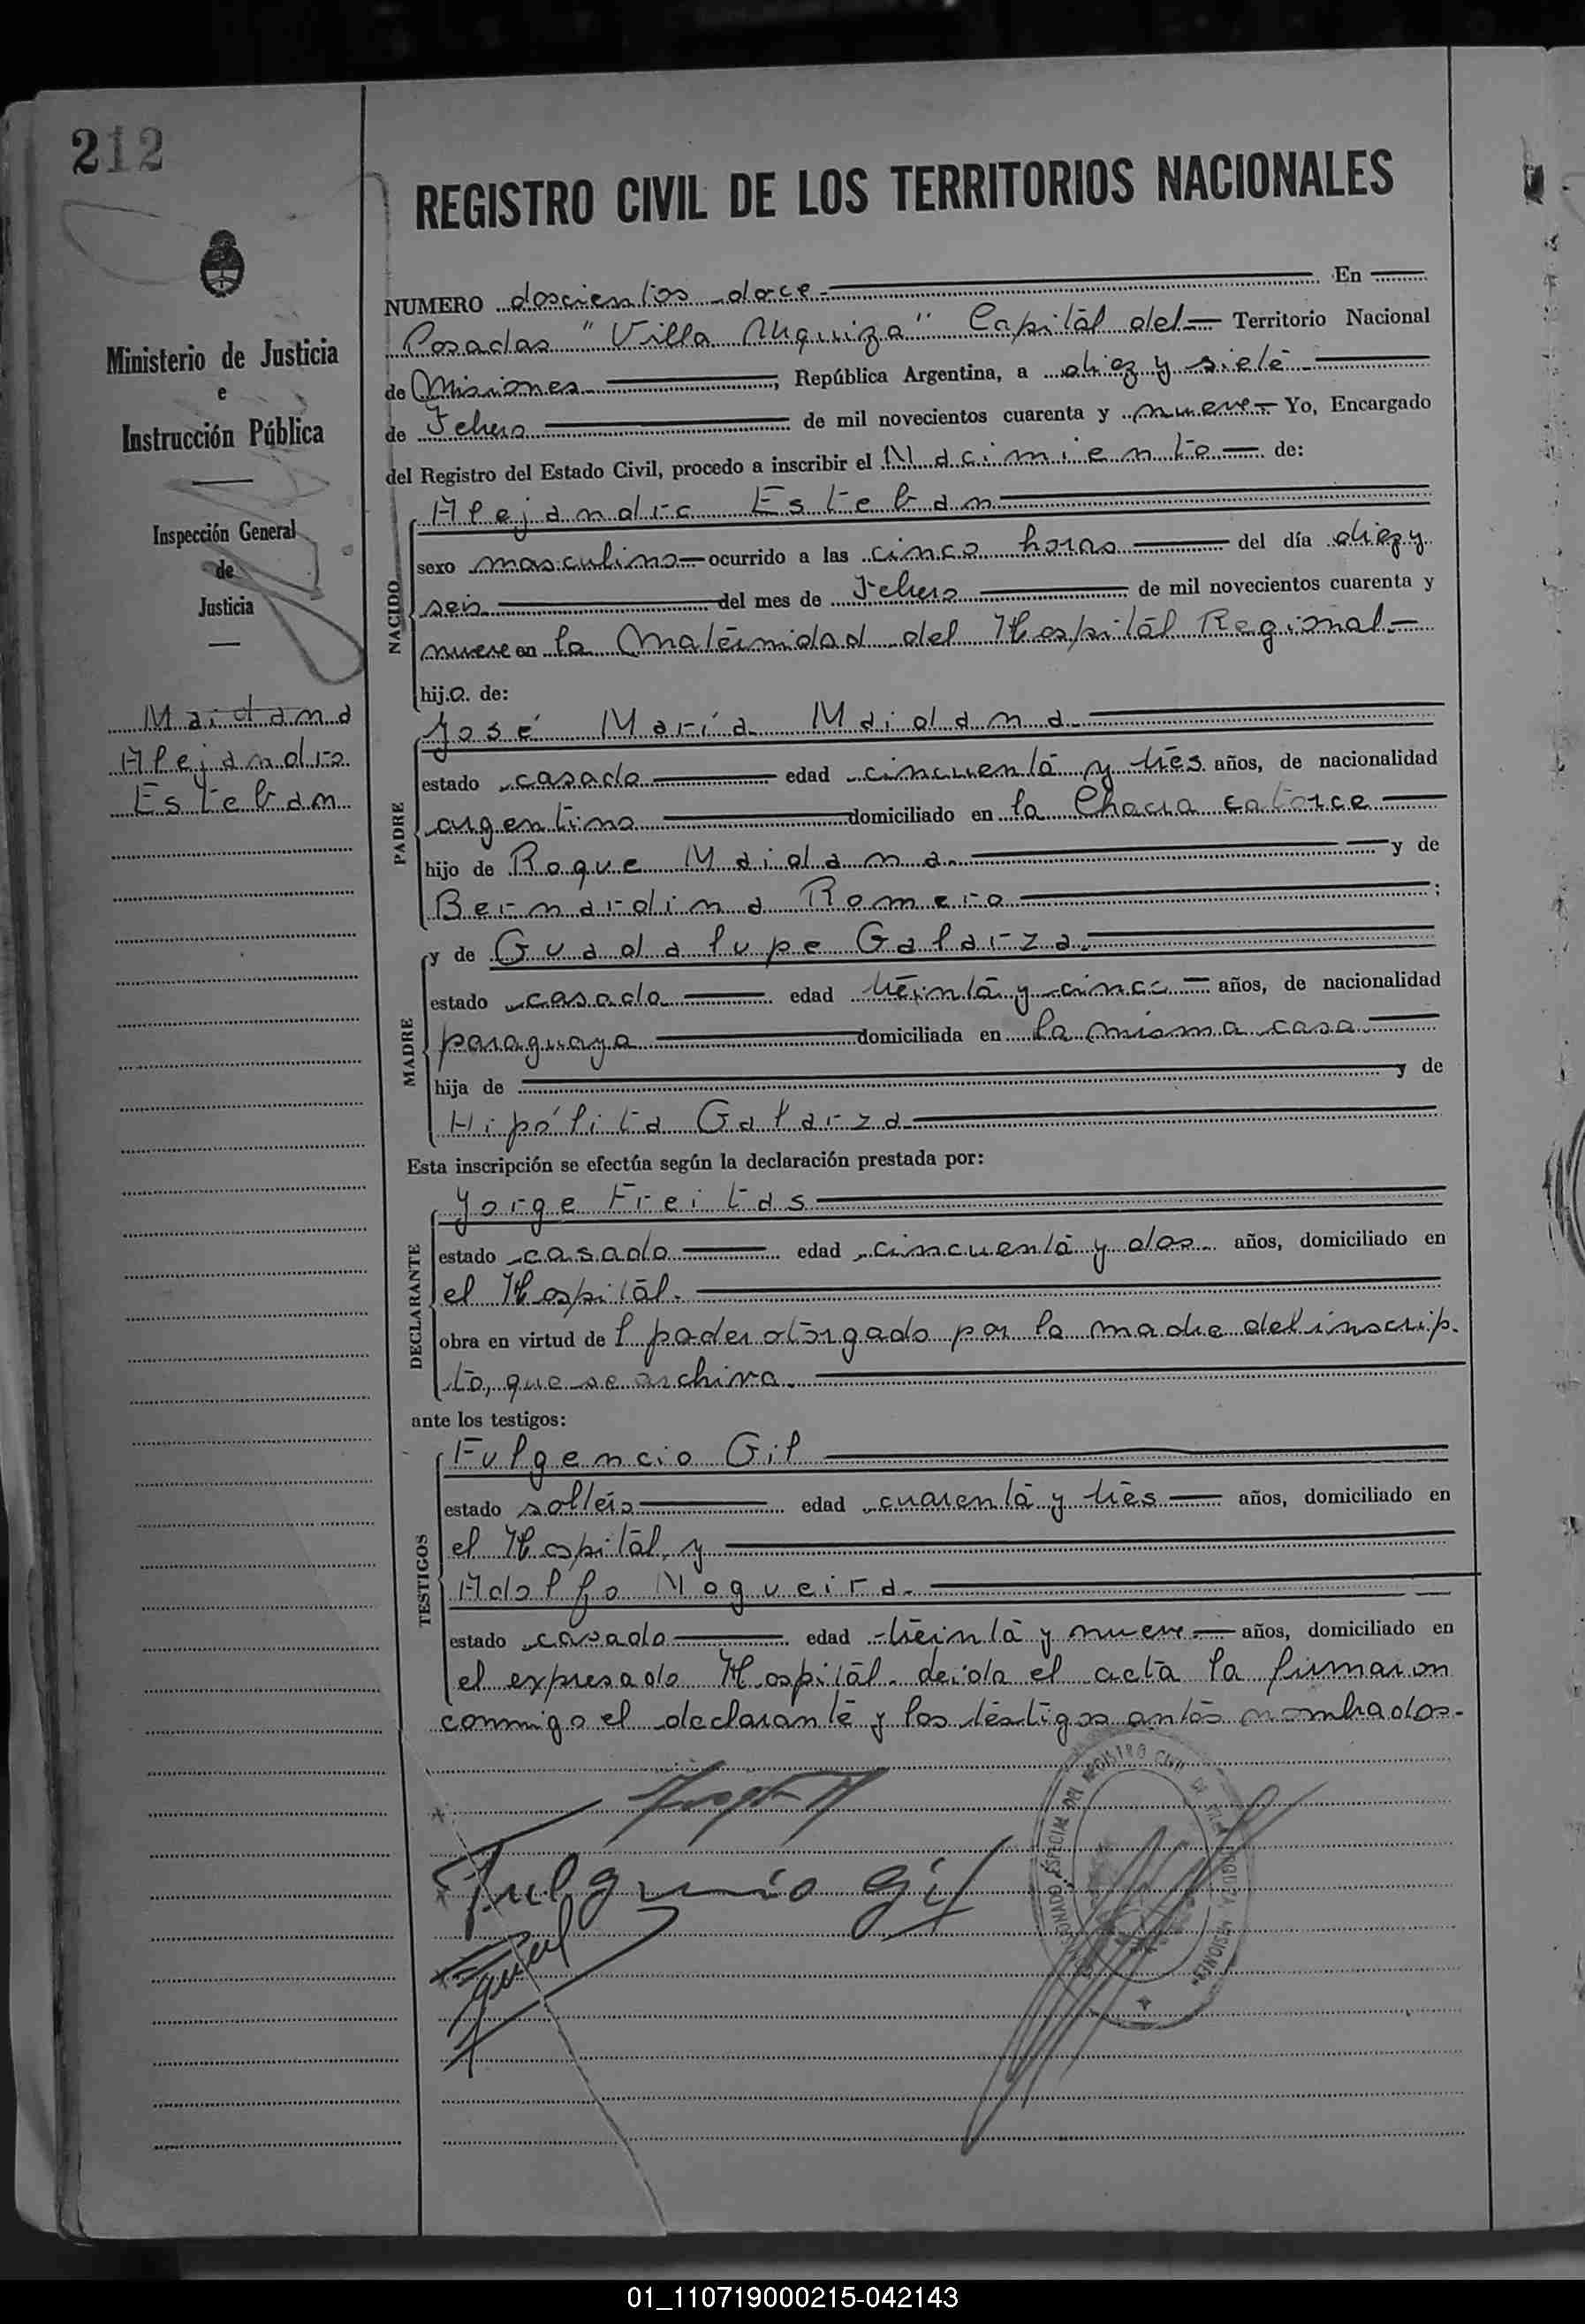 212
REGISTRO CIVIL DE LOS TERRITORIOS NACIONALES
Ministerio de Justicia
e
Instrucción Pública
Inspección General
de
Justicia
Maidana
Alejandro
Esteban
NUMERO doscientos doce En
Posadas "Villa Urquiza" Capital del Territorio Nacional
de Misiones, República Argentina, a diez y siete
de Febero de mil novecientos cuarenta y nueve Yo, Encargado
del Registro del Estado Civil, procedo a inscribir el Nacimiento de:
NACIDO
Alejandro Esteban
sexo masculino ocurrido a las cinco horas del día diez y
seis del mes de Febero de mil novecientos cuarenta y
nueve en la Maternidad del Hospital Regional.
hijo. de:
PADRE
José María Maidana
estado casado edad cincuenta y tres años, de nacionalidad
argentino domiciliado en la Chacra catorce
hijo de Roque Maidana. y de
Bernardina Romero ;
MADRE
y de Guadalupe Galarza.
estado casada edad treinta y cinco años, de nacionalidad
paraguaya domiciliada en la misma casa
hija de y de
Hipólita Galarza
Esta inscripción se efectúa según la declaración prestada por:
DECLARANTE
Jorge Freitas
estado casado edad cincuenta y dos años, domiciliado en
el Hospital.
obra en virtud de l poder otorgado por la madre del inscrip.
to, que se archiva.
ante los testigos:
TESTIGOS
Fulgencio Gil
estado soltero edad cuarenta y tres años, domiciliado en
el Hospital, y
Adolfo Nogueira.
estado casado edad treinta y nueve años, domiciliado en
el expresado Hospital. Leída el acta la firmaron
conmigo el declarante y los testigos antes nombrados.
Fulgencio Gil
REGISTRO CIVIL
01_110719000215-042143